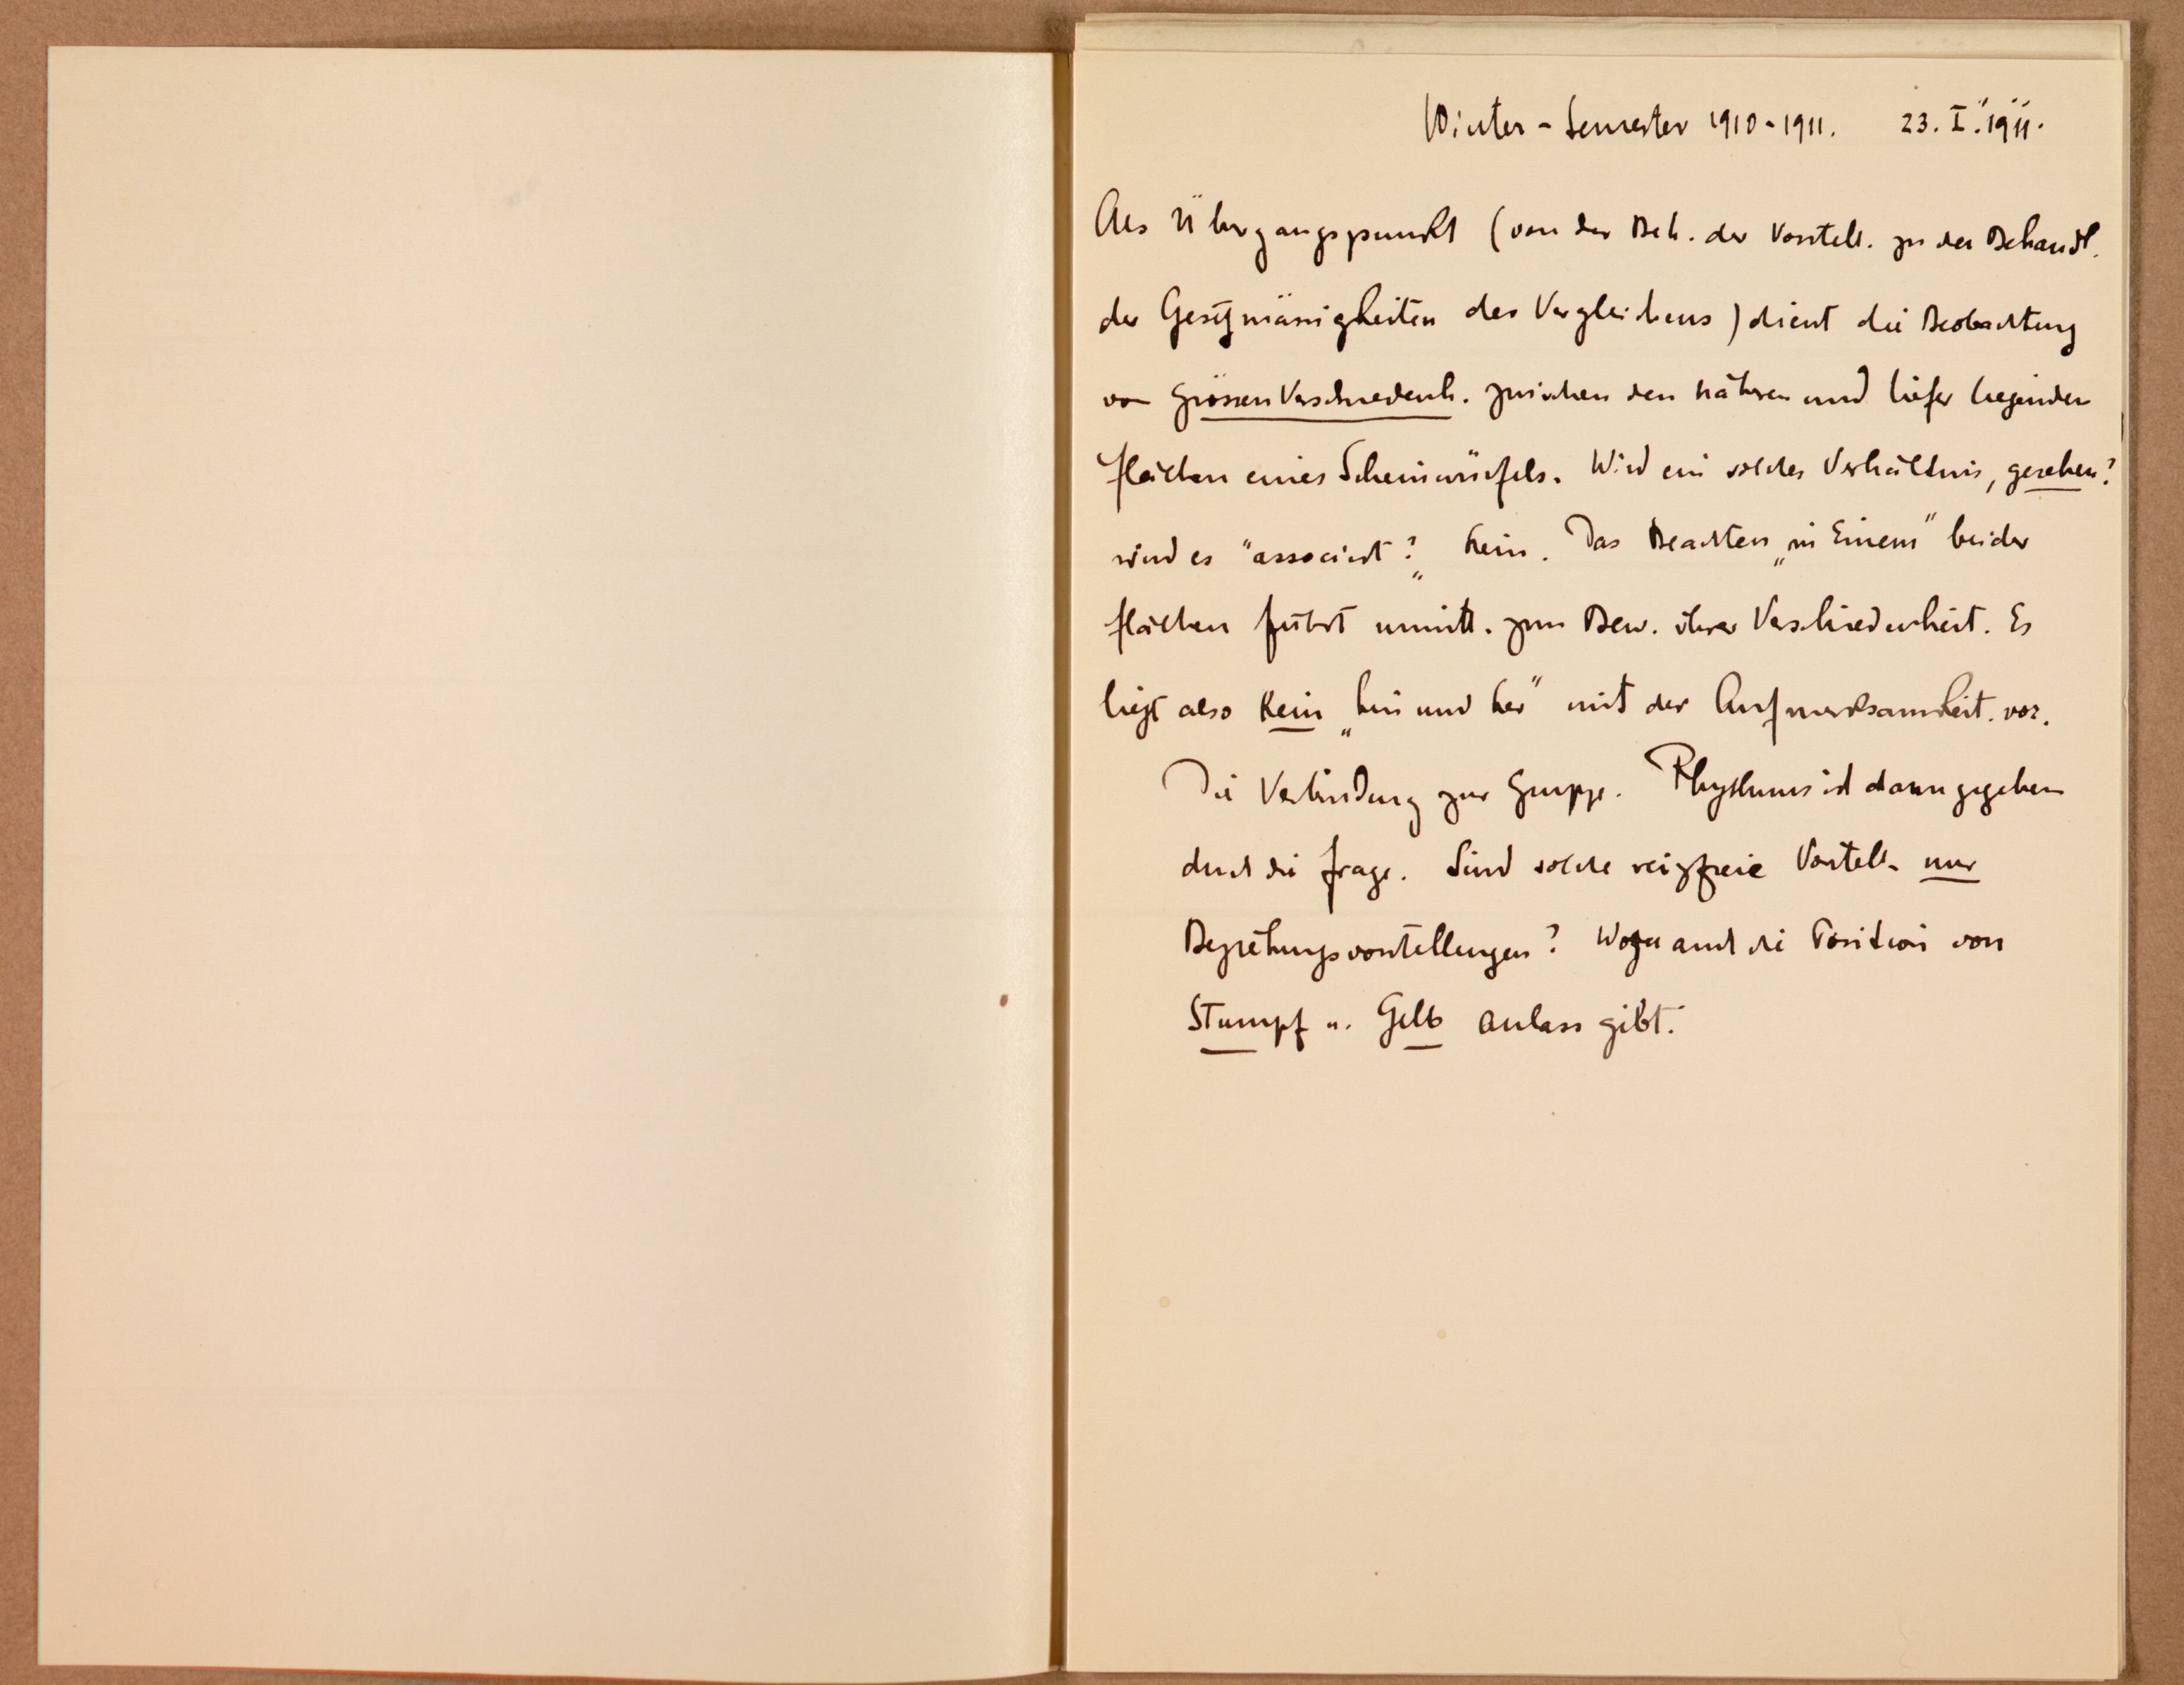 Winter-Semester 1910-1911. 23. I. 1911.
Als Übergangspunkt (von der Beh. der Vorstell. zu der Behandl.
der Gesetzmässigkeiten des Vergleichens) dient die Beobachtung
von Grössen Verschiedenh. zwischen den näheren und tiefer liegenden
Flächen eines Scheinwürfels. Wird ein solches Verhältnis, gesehen?
wird es "associirt?„ Nein. Das Beachten „in Einem" beider
Flächen führt unmitt. zum Bew. ihrer Verschiedenheit. Es
liegt also kein „hin und her" mit der Aufmerksamkeit. vor.
Die Verbindung zur Gruppe. Rhythmus ist dann gegeben
durch die Frage. Sind solche reizfreie Vorstell. nur
Beziehungsvorstellungen? Wozu auch die Position von
Stumpf u. Gelb anlass gibt.